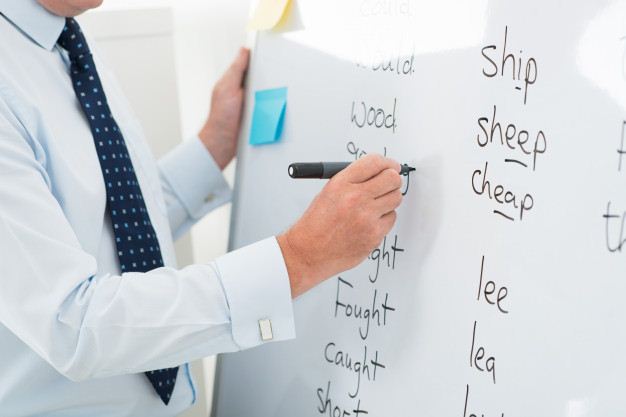 could
would
Wood
Fought
Caught
short
ship
sheep
cheap
lee
lea